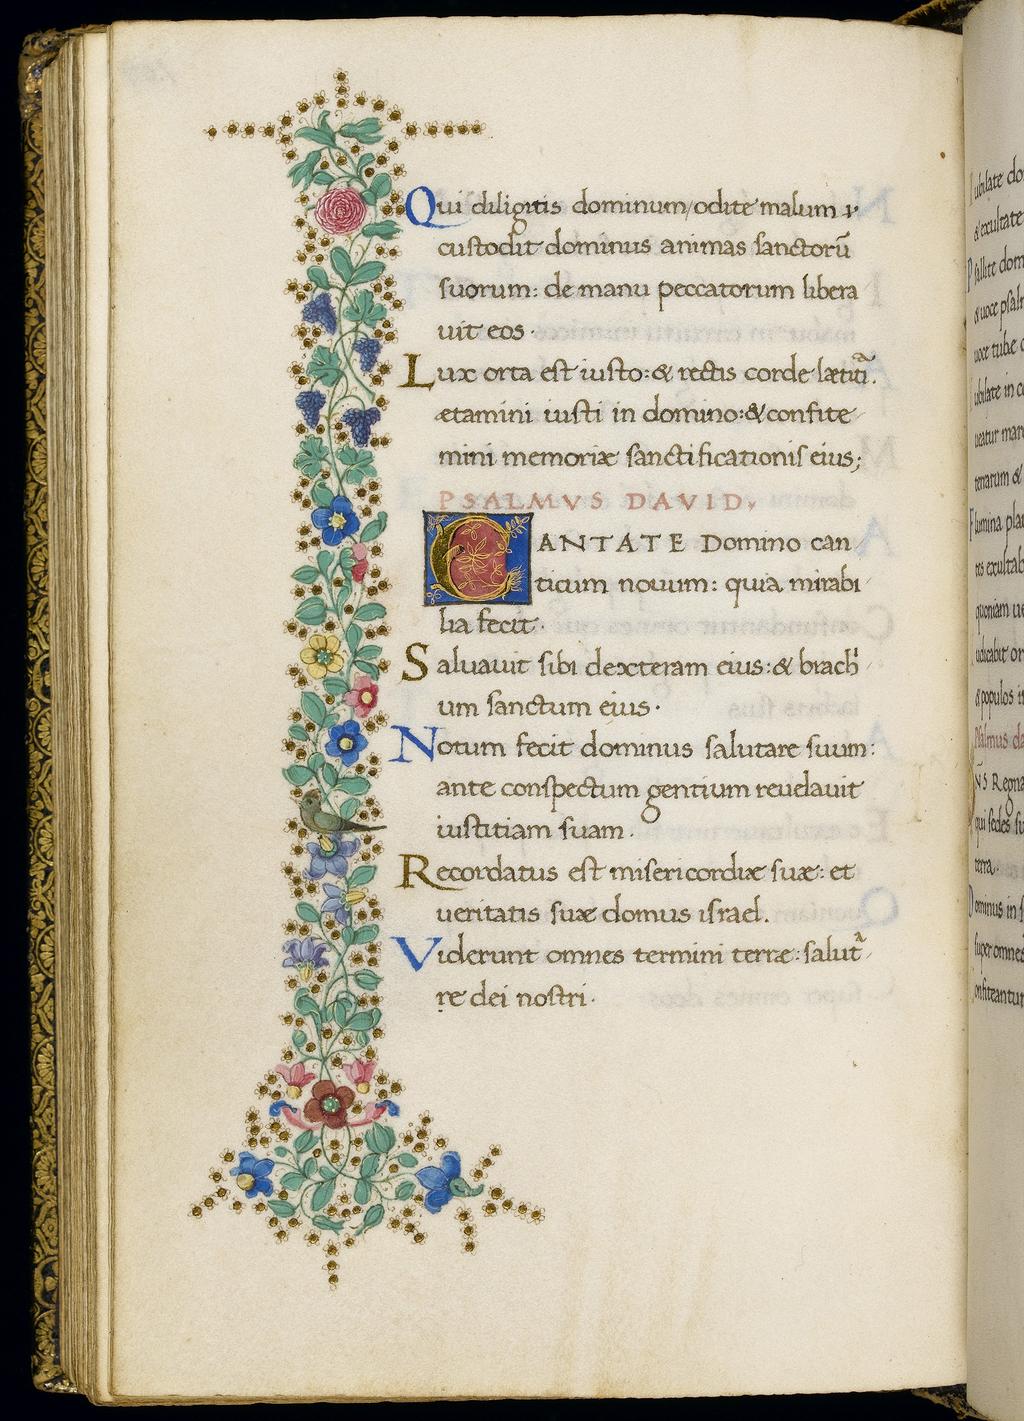 Qui diligitis dominum/odite malum
custodit dominus animas sanctorū
suorum: de manu peccatorum libera
uit eos.
Lux orta est iusto: & rectis corde lætiti.
ætamini iusti in domino: & confite
mini memoriæ sanctificationis eius;
PSALMVS DAVID.
CANTATE Domino can
ticum nouum: quia mirabi
lia fecit.
Saluauit sibi dexteram eius: & brach
um sanctum eius.
Notum fecit dominus salutare suum:
ante conspectum gentium reuelauit
iustitiam suam.
Recordatus est misericordiæ suæ: et
ueritatis suæ domus israel.
Viderunt omnes termini terræ: salut
re dei nostri.
ubilate do
& exultate
Psallite dom
& uoce psalm
uoce tube c
ubilate in co
ueatur mare
terrarum &
Flumina plau
tes exultab
quoniam ue
udicabit or
& populos in
Psalmus da
NS Regna
qui sedes su
terra.
Dominus in s
super omnes
onfiteantur